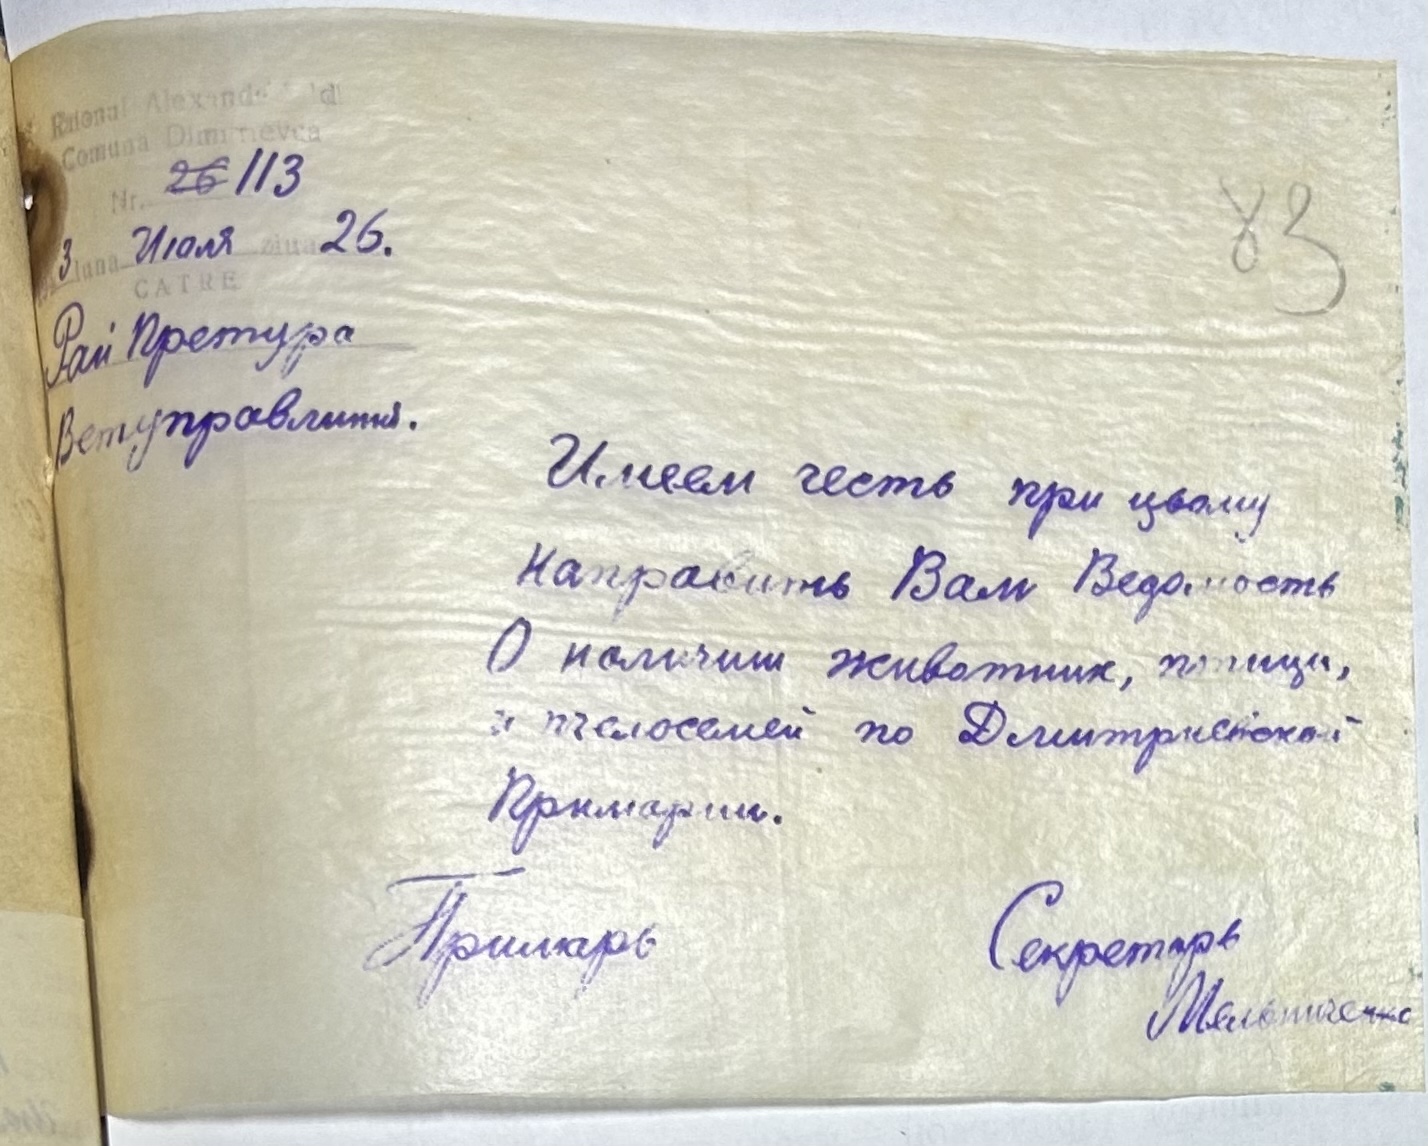 Raional Alexanderfeld
Comuna Dimitrievca
Nr. 26 113
3 luna Июля ziua 26.
CATRE
Рай Претура
Ветуправлиния.
83
Имеем честь при цьому
Направить Вам Ведомость
О наличии животник, птици,
и пчелосемей по Дмитриевской
Примарии.
Примарь
Секретарь